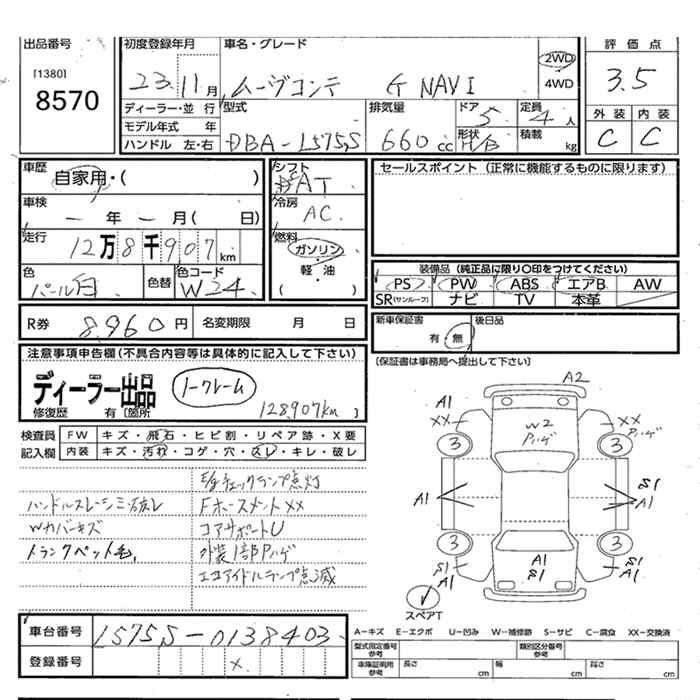 出品番号
[1380]
8570
初度登録年月
23 11月
車名・グレード
ムーヴコンテ G NAVI
2WD
4WD
評価点
3.5
外装 内装
C C
ディーラー・並行
モデル年式 年
ハンドル 左・右
型式
DBA-L575S
排気量
660cc
ドア
5
形状
H/B
定員
4人
積載
kg
車歴
自家用・( )
車検
ー年ー月( 日)
走行
12万8千907km
色
パール白
色替
色コード
W24
シフト
AT
冷房
AC
燃料
ガソリン・
軽・油
( )
セールスポイント(正常に機能するものに限ります)
装備品(純正品に限り○印をつけてください)
PS PW ABS エアB AW
SR(サンルーフ) ナビ TV 本革
R券 8,960円 名変期限 月 日
新車保証書
有 無
後日品
[保証書は事務局へ提出して下さい]
注意事項申告欄(不具合内容等は具体的に記入して下さい)
ディーラー出品
ノークレーム
修復歴 有[箇所 128,907km ]
検査員
記入欄
FW キズ・飛石・ヒビ割・リペア跡・X要
内装 キズ・汚れ・コゲ・穴・スレ・キレ・破レ
ハンドルスレ
Wカバーキズ
トランクペット毛
チェックランプ点灯
FホースメントXX
コアサポートU
外装1部Pハゲ
エコアイドルランプ点滅
A2
A1
XX
W2
Pハゲ
XX
Pハゲ
3
3
A1
S1
A1
3
3
A1
S1
S1
A1
S1
A1
スペアT
A−キズ E−エクボ U−凹み W−補修跡 S−サビ C−腐食 XX−交換済
車台番号 L575S-0138403
登録番号 X
型式指定番号
参考
類別区分番号
参考
車庫証明用
参考
長さ cm 幅 cm 高さ cm